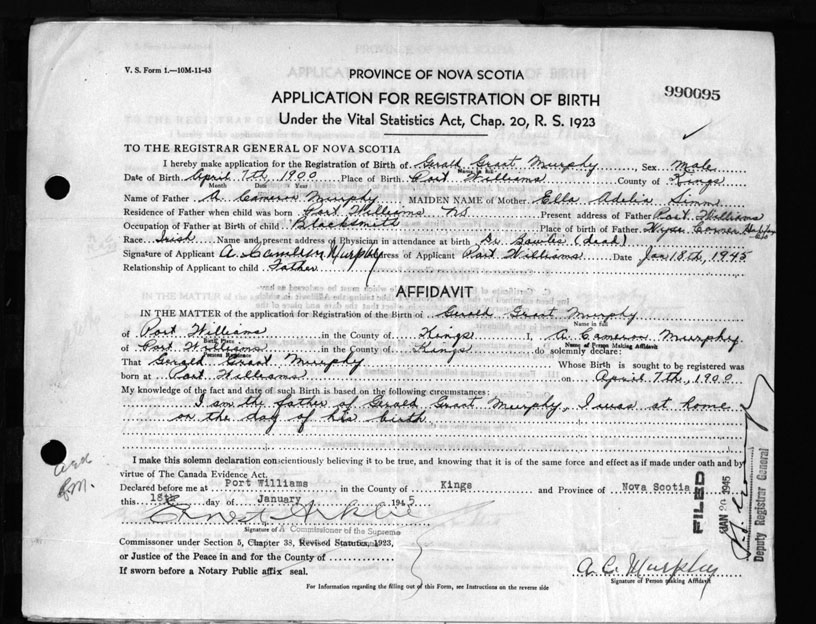 V. S. Form 1.—10M-11-43
PROVINCE OF NOVA SCOTIA
990095
APPLICATION FOR REGISTRATION OF BIRTH
Under the Vital Statistics Act, Chap. 20, R. S. 1923
TO THE REGISTRAR GENERAL OF NOVA SCOTIA
I hereby make application for the Registration of Birth of Gerald Grant Murphy, Sex Male
Name in full
Date of Birth April 7th, 1900 Place of Birth Port Williams County of Kings
Month Date Year
Name of Father A Cameron Murphy MAIDEN NAME of Mother Ella Adelia
Residence of Father when child was born Port Williams NS Present address of Father Port Williams
Occupation of Father at Birth of child Blacksmith Place of birth of Father Corner
Race Irish Name and present address of Physician in attendance at birth Dr (dead)
Signature of Applicant A. Cameron Murphy Address of Applicant Port Williams Date Jan 18th, 1945
Relationship of Applicant to child Father
AFFIDAVIT
IN THE MATTER of the application for Registration of the Birth of Gerald Grant Murphy
Name in full
of Port Williams in the County of Kings I, A. Cameron Murphy
Birth Place Name of Person Making Affidavit
of Port Williams in the County of Kings do solemnly declare:
Present Residence
That Gerald Grant Murphy Whose Birth is sought to be registered was
born at Port Williams on April 7th, 1900
My knowledge of the fact and date of such Birth is based on the following circumstances:
I am the father of Gerald Grant Murphy, I was at home
on the day of his birth
I make this solemn declaration conscientiously believing it to be true, and knowing that it is of the same force and effect as if made under oath and by
virtue of The Canada Evidence Act.
Declared before me at Port Williams in the County of Kings and Province of Nova Scotia
this 18th day of January 1945
Signature of A Commissioner of the Supreme
Commissioner under Section 5, Chapter 38, Revised Statutes, 1923,
or Justice of the Peace in and for the County of
If sworn before a Notary Public affix seal.
A. C. Murphy
Signature of Person making Affidavit
For Information regarding the filling out of this Form, see Instructions on the reverse side
FILED
JAN 20 1945
Deputy Registrar General